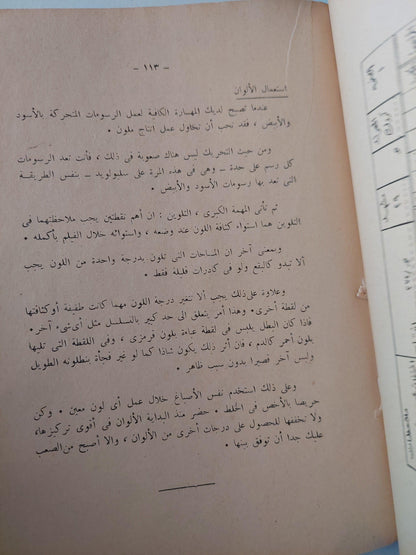 - ١١٣ -
استعمال الألوان
عندما تصبح لديك المهارة الكافية لعمل الرسومات المتحركة بالأسود
والأبيض ، فقد تحب أن تحاول عمل انتاج ملون .
ومن حيث التحريك ليس هناك صعوبة فى ذلك ، فأنت تعد الرسومات
كل رسم على حدة - وهى فى هذه المرة على سليولويد - بنفس الطريقة
التى تعد بها رسومات الأسود والأبيض .
ثم تأتى المهمة الكبرى ، التلوين : ان أهم نقطتين يجب ملاحظتهما فى
التلوين هما استواء كثافة اللون عند وضعه ، واستوائه خلال الفيلم بأكمله .
وبمعنى آخر ان المساحات التى تلون بدرجة واحدة من اللون يجب
ألا تبدو كالبقع ولو فى كادرات قليلة فقط .
وعلاوة على ذلك يجب ألا تتغير درجة اللون مهما كانت طفيفة أو كثافتها
من لقطة أخرى . وهذا أمر يتعلق الى حد كبير بالتسلسل مثل أى شىء آخر .
فاذا كان البطل يلبس فى لقطة عباءة بلون قرمزى ، وفى اللقطة التى تليها
بلون أحمر كالدم ، فان أثر ذلك يكون شاذا كما لو غير فجأة بنطلونه الطويل
ولبس آخر قصيرا بدون سبب ظاهر .
وعلى ذلك استخدم نفس الأصباغ خلال عمل أى لون معين . وكن
حريصا بالأخص فى الخلط . حضر منذ البداية الألوان فى أقوى تركيزها،
ولا تخففها للحصول على درجات أخرى من الألوان ، والا أصبح من الصعب
عليك جدا أن توفق بينها .